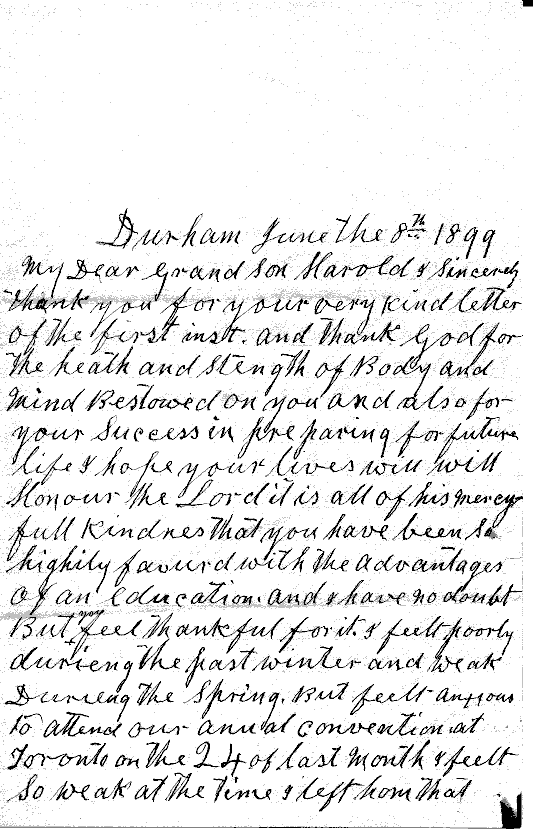 Durham June the 8th 1899
My Dear Grand Son Harold I Sincerely
thank you for your very kind letter
of the first inst. and thank God for
the heath and Stength of Body and
Mind Bestowed on you and also for
your Success in preparing for future
life I hope your lives will will
Honour the Lord it is all of his mercy
full Kindnes that you have been So
highily favourd with the advantages
of an education. and I have no doubt
But you feel thankful for it. I feelt poorly
durieng the past winter and weak
Durieng the Spring. But feelt anxious
to attend our anual convention at
Toronto on the 24 of last Month I feelt
So weak at the time I left hom that